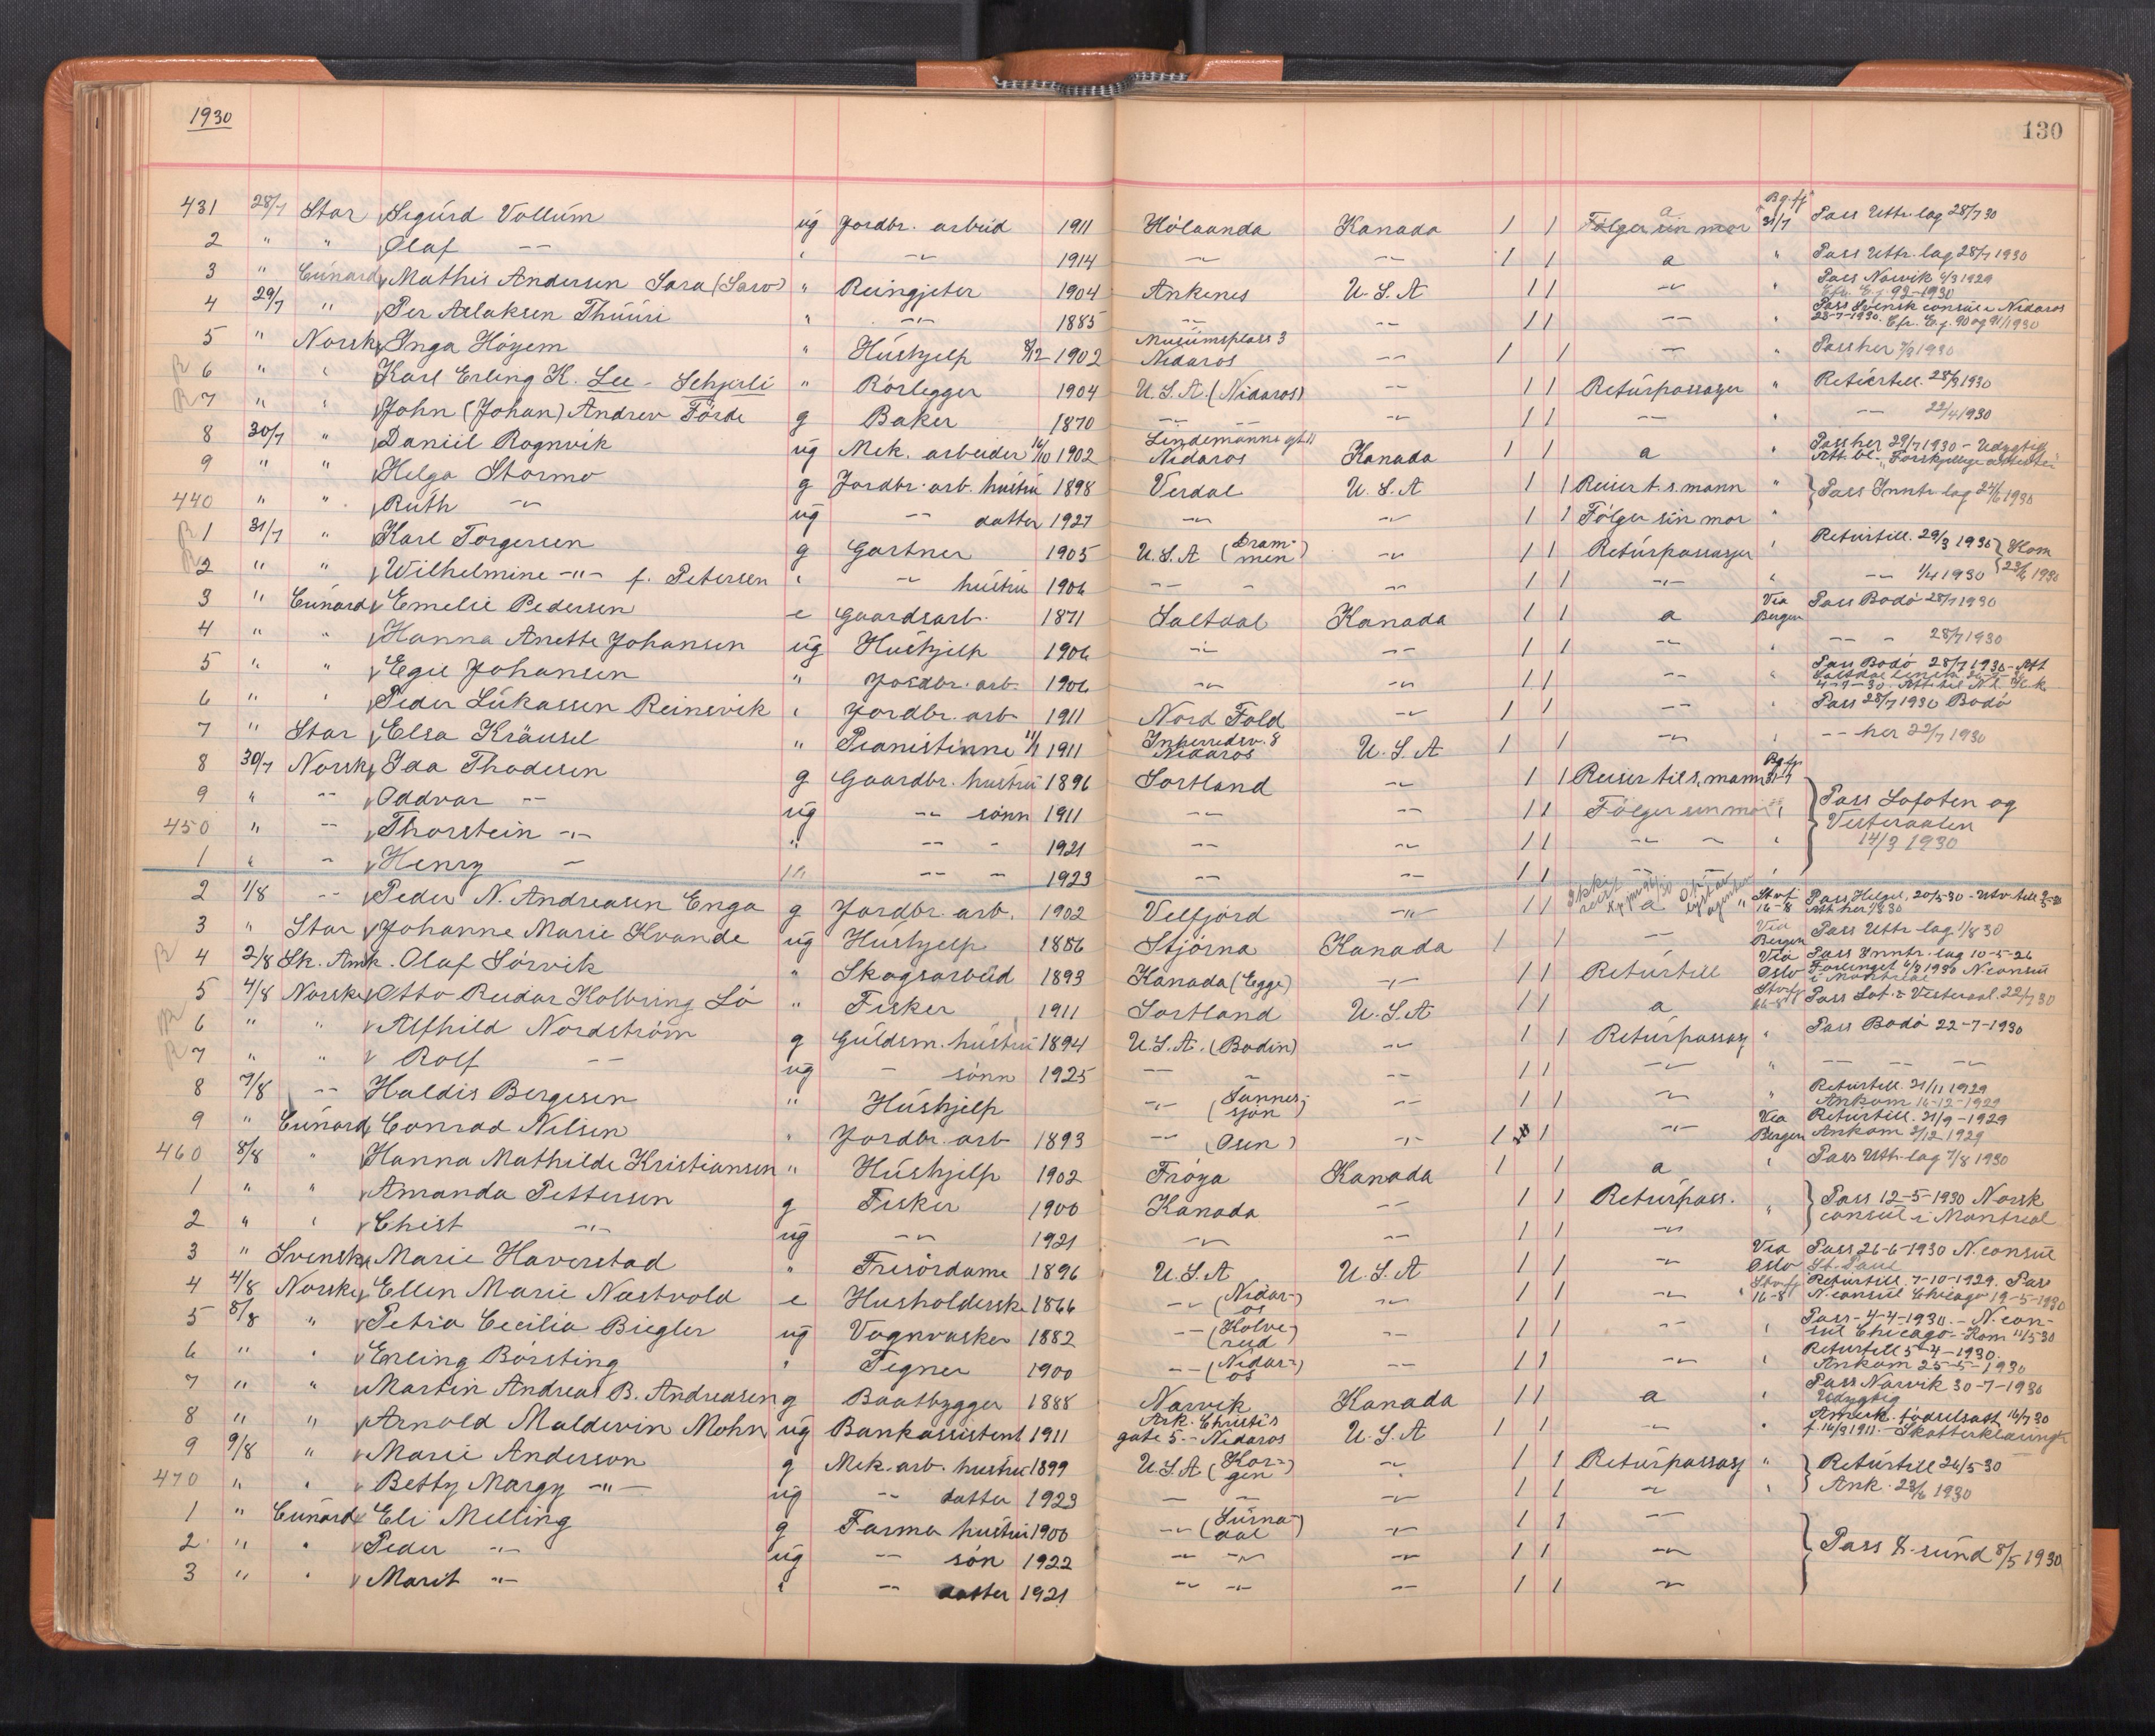 1930
130
431 28/7 Star Sigurd Vollum ug Jordbr. arbeid 1911 Hölaanda Kanada 1 1 Fölger sin mor a Bg.fj 31/7 Pass Uttr. lag 28/7 30
2 " " Olaf -"- " -"- 1914 -"- -"- 1 1 a " Pass Uttr. lag 28/7 1930
3 " Cunard Mathis Andersen Sara (Sarv) " Reingjeter 1904 Ankenes U.S.A 1 1 -"- " Pass Narvik 6/3 1929 Efr. E.j. 92-1930
4 29/7 " Per Aslaksen Thuuri " -"- 1885 -"- -"- 1 1 -"- " Pass Svensk consul i Nidaros 28-7-1930. Efr. E.j. 90 og 91/1930
5 " Norske Inga Höyem " Hushjelp 8/12 1902 Museumsplass 3 Nidaros -"- 1 1 -"- " Pass her 7/3 1930
R 6 " " Karl Erling K. Lee - Schjerli " Rörlegger 1904 U.S.A. (Nidaros) -"- 1 1 Returpassager " Returtill. 28/3 1930
R 7 " " John (Johan) Andrew Förde g Baker 1870 -"- -"- 1 1 -"- " -"- 22/4 1930
8 30/7 " Daniel Rognvik ug Mek. arbeider 16/10 1902 Lindemanns gt 11 Nidaros Kanada 1 1 a " Pass her 29/7 1930 - Udygtig
9 " " Helga Stormo g Jordbr. arb. hustru 1898 Verdal U.S.A 1 1 Reiser t. s. mann " Pass Inntr. lag 24/6 1930
440 " " Ruth -"- ug -"- datter 1927 -"- -"- 1 1 Fölger sin mor "
R 1 31/7 " Karl Torgersen g Gartner 1905 U.S.A (Drammen) -"- 1 1 Returpassasjer " Returtill. 29/3 1930 Kom 23/6 1930
R 2 " " Wilhelmine -"- f. Petersen " -"- hustru 1906 -"- -"- 1 1 -"- " -"- 1/4 1930
3 " Cunard Emelie Pedersen e Gaardsarb. 1871 Saltdal Kanada 1 1 a Via Bergen Pass Bodö 28/7 1930
4 " " Hanna Anette Johansen ug Hushjelp 1906 -"- -"- 1 1 -"- " -"- 28/7 1930
5 " " Egil Johansen " Jordbr. arb. 1906 -"- -"- 1 1 -"- " Pass Bodö 28/7 1930 - Att
6 " " Peder Lukassen Reinsvik " Jordbr. arb 1911 Nord Fold -"- 1 1 -"- " Pass 28/7 1930 Bodö
7 " Star Elsa Kräusel " Pianistinne 11/1 1911 Inherredsv. 8 Nidaros U.S.A 1 1 -"- " -"- her 22/7 1930
8 30/7 Norske Ida Thodesen g Gaardbr. hustru 1896 Sortland -"- 1 1 Reiser til s. mann Bg.fj 31-7 Pass Lofoten og Vesteraalen 14/3 1930
9 " -"- Oddvar -"- ug -"- sönn 1911 -"- -"- 1 1 Fölger sin mor "
450 " -"- Thorstein -"- " -"- - 1921 -"- -"- 1 1 -"- "
1 " -"- Henry - " -"- - 1923 -"- -"- 1 1 -"- "
2 1/8 -"- Peder N. Andreasen Enga g Jordbr. arb. 1902 Velfjord -"- 1 1 Ikke reist a " Storfj 16-8 Pass Helgel. 20/5-30 - Utv. till
3 " Star Johanne Marie Kvande ug Hushjelp 1886 Stjörna Kanada 1 1 -"- Via Bergen Pass Uttr. lag. 1/8 30
R 4 2/8 Sk. Amk. Olaf Sörvik " Skogsarbeid 1893 Kanada (Egge) -"- 1 1 Returtill Via Oslo Pass Inntr. lag 10-5-26 Forlenget 6/3 1930 N consul i Montreal
5 4/8 Norske Otto Reidar Kolbring Lö " Fisker 1911 Sortland U.S.A 1 1 a Storfj 16-8 Pass Lof. & Vesteraal. 22/7 30
R 6 " " Alfhild Nordström g Guldsm. hustru 1894 U.S.A. (Bodin) -"- 1 1 Returpassasj " Pass Bodö 22-7-1930
R 7 " " Rolf -"- ug - sönn 1925 -"- -"- 1 1 -"- " -"- -"-
8 7/8 -"- Haldis Bergesen " Hushjelp -"- (Sannessjön) -"- 1 1 -"- " Returtill. 21/11 1929 Ankom 16-12-1929
9 " Cunard Conrad Nilsen " Jordbr. arb 1893 -"- (Osen) -"- 1 1 -"- Via Bergen Returtill. 21/9-1929 Ankom 3/12 1929
460 8/8 " Hanna Mathilde Kristiansen " Hushjelp 1902 Fröya Kanada 1 1 a " Pass Uttr. lag 7/8 1930
1 " " Amanda Pettersen g Fisker 1900 Kanada -"- 1 1 Returpass. " Pass 12-5-1930 Norsk consul i Montreal
2 " " Chist -"- ug -"- 1921 -"- -"- 1 1 -"-
3 " Svenske Marie Haverstad " Frisördame 1896 U.S.A U.S.A 1 1 -"- Via Oslo Pass 26-6-1930 N. consul St. Paul
4 4/8 Norske Ellen Marie Næstvold e Husholderske 1866 -"- (Nidaros) -"- 1 1 -"- Storfj 16-8 Returtill. 7-10-1929. Pass N. consul Chicago 19-5-1930
5 8/8 " Petria Cecilia Biegler ug Vognvasker 1882 -"- (Kolvereid) -"- 1 1 -"- " Pass - 4-4-1930 - N. consul Chicago - Kom 11/5 30
6 " " Erling Börsting " Tegner 1900 -"- (Nidaros) -"- 1 1 -"- " Returtill 5-4-1930. Ankom 25-5-1930
7 " " Martin Andreas B. Andreasen g Baatbygger 1888 Narvik Kanada 1 1 a " Pass Narvik 30-7-1930 Udygtig
8 " " Arnold Maldevin Mohn ug Bankassistent 1911 Ark. Christis gate 5 - Nidaros U.S.A 1 1 -"- " Amerik. födselsatt 16/7 30 f. 16/3 1911. - Skatterklæring
9 9/8 " Marie Anderson g Mek. arb. hustru 1899 U.S.A (Korgen) -"- 1 1 Returpassasj " Returtill 26/5-30 Ank. 23/6 1930
470 " " Betty Margy -"- ug -"- datter 1923 -"- -"- 1 1 -"- "
1 " Cunard Eli Melling g Farmer hustru 1900 -"- (Surnadal) -"- 1 1 -"- Pass K-sund 8/5 1930
2 " " Peder -"- ug -"- sön 1922 -"- -"- 1 1 -"-
3 " " Marit -"- " -"- datter 1921 -"- -"- 1 1 -"-